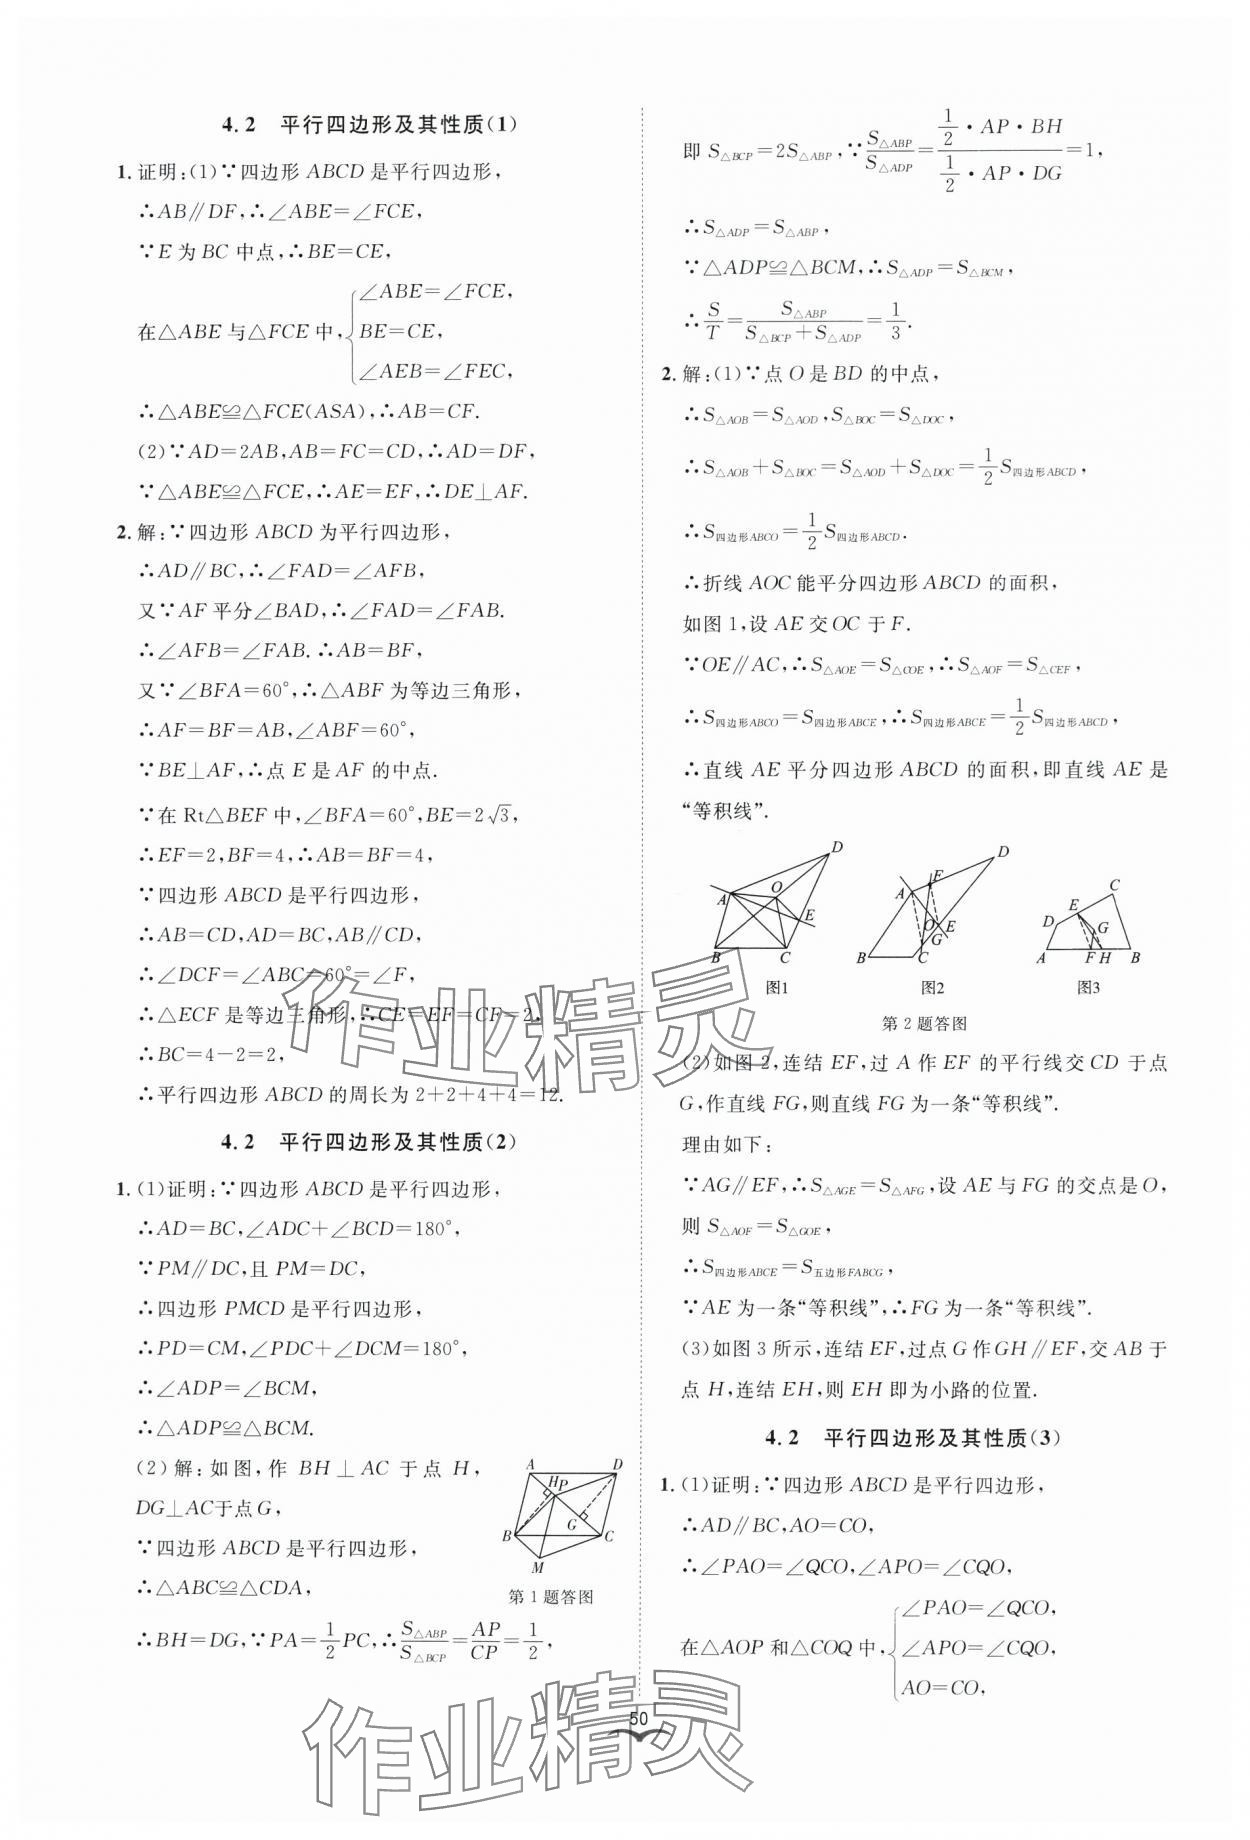 4.2 平行四边形及其性质(1)
1. 证明:(1)∵四边形 ABCD 是平行四边形,
∴AB∥DF,∴∠ABE=∠FCE,
∵E 为 BC 中点,∴BE=CE,
在△ABE 与△FCE 中,{∠ABE=∠FCE,
BE=CE,
∠AEB=∠FEC,
∴△ABE≌△FCE(ASA),∴AB=CF.
(2)∵AD=2AB,AB=FC=CD,∴AD=DF,
∵△ABE≌△FCE,∴AE=EF,∴DE⊥AF.
2. 解:∵四边形 ABCD 为平行四边形,
∴AD∥BC,∴∠FAD=∠AFB,
又∵AF 平分∠BAD,∴∠FAD=∠FAB.
∴∠AFB=∠FAB.∴AB=BF,
又∵∠BFA=60°,∴△ABF 为等边三角形,
∴AF=BF=AB,∠ABF=60°,
∵BE⊥AF,∴点 E 是 AF 的中点.
∵在 Rt△BEF 中,∠BFA=60°,BE=2√3,
∴EF=2,BF=4,∴AB=BF=4,
∵四边形 ABCD 是平行四边形,
∴AB=CD,AD=BC,AB∥CD,
∴∠DCF=∠ABC=60°=∠F,
∴△ECF 是等边三角形,∴CE=EF=CF=2,
∴BC=4-2=2,
∴平行四边形 ABCD 的周长为 2+2+4+4=12.
4.2 平行四边形及其性质(2)
1. (1)证明:∵四边形 ABCD 是平行四边形,
∴AD=BC,∠ADC+∠BCD=180°,
∵PM∥DC,且 PM=DC,
∴四边形 PMCD 是平行四边形,
∴PD=CM,∠PDC+∠DCM=180°,
∴∠ADP=∠BCM,
∴△ADP≌△BCM.
(2)解:如图,作 BH⊥AC 于点 H,
DG⊥AC于点 G,
∵四边形 ABCD 是平行四边形,
∴△ABC≌△CDA,
∴BH=DG,∵PA=1/2PC,∴S△ABP/S△BCP=AP/CP=1/2,
A D H P G B C M
第 1 题答图
即 S△BCP=2S△ABP,∵S△ABP/S△ADP=(1/2·AP·BH)/(1/2·AP·DG)=1,
∴S△ADP=S△ABP,
∵△ADP≌△BCM,∴S△ADP=S△BCM,
∴S/T=S△ABP/(S△BCP+S△ADP)=1/3.
2. 解:(1)∵点 O 是 BD 的中点,
∴S△AOB=S△AOD,S△BOC=S△DOC,
∴S△AOB+S△BOC=S△AOD+S△DOC=1/2S四边形ABCD,
∴S四边形ABCO=1/2S四边形ABCD.
∴折线 AOC 能平分四边形 ABCD 的面积,
如图 1,设 AE 交 OC 于 F.
∵OE∥AC,∴S△AOE=S△COE,∴S△AOF=S△CEF,
∴S四边形ABCO=S四边形ABCE,∴S四边形ABCE=1/2S四边形ABCD,
∴直线 AE 平分四边形 ABCD 的面积,即直线 AE 是
“等积线”.
D O A E B C
D F A O E G B C
C E D G A F H B
图1 图2 图3
第 2 题答图
(2)如图 2,连结 EF,过 A 作 EF 的平行线交 CD 于点
G,作直线 FG,则直线 FG 为一条“等积线”.
理由如下:
∵AG∥EF,∴S△AGE=S△AFG,设 AE 与 FG 的交点是 O,
则 S△AOF=S△GOE,
∴S四边形ABCE=S五边形FABCG,
∵AE 为一条“等积线”,∴FG 为一条“等积线”.
(3)如图 3 所示,连结 EF,过点 G 作 GH∥EF,交 AB 于
点 H,连结 EH,则 EH 即为小路的位置.
4.2 平行四边形及其性质(3)
1. (1)证明:∵四边形 ABCD 是平行四边形,
∴AD∥BC,AO=CO,
∴∠PAO=∠QCO,∠APO=∠CQO,
在△AOP 和△COQ 中,{∠PAO=∠QCO,
∠APO=∠CQO,
AO=CO,
50
作业精灵
作业精灵